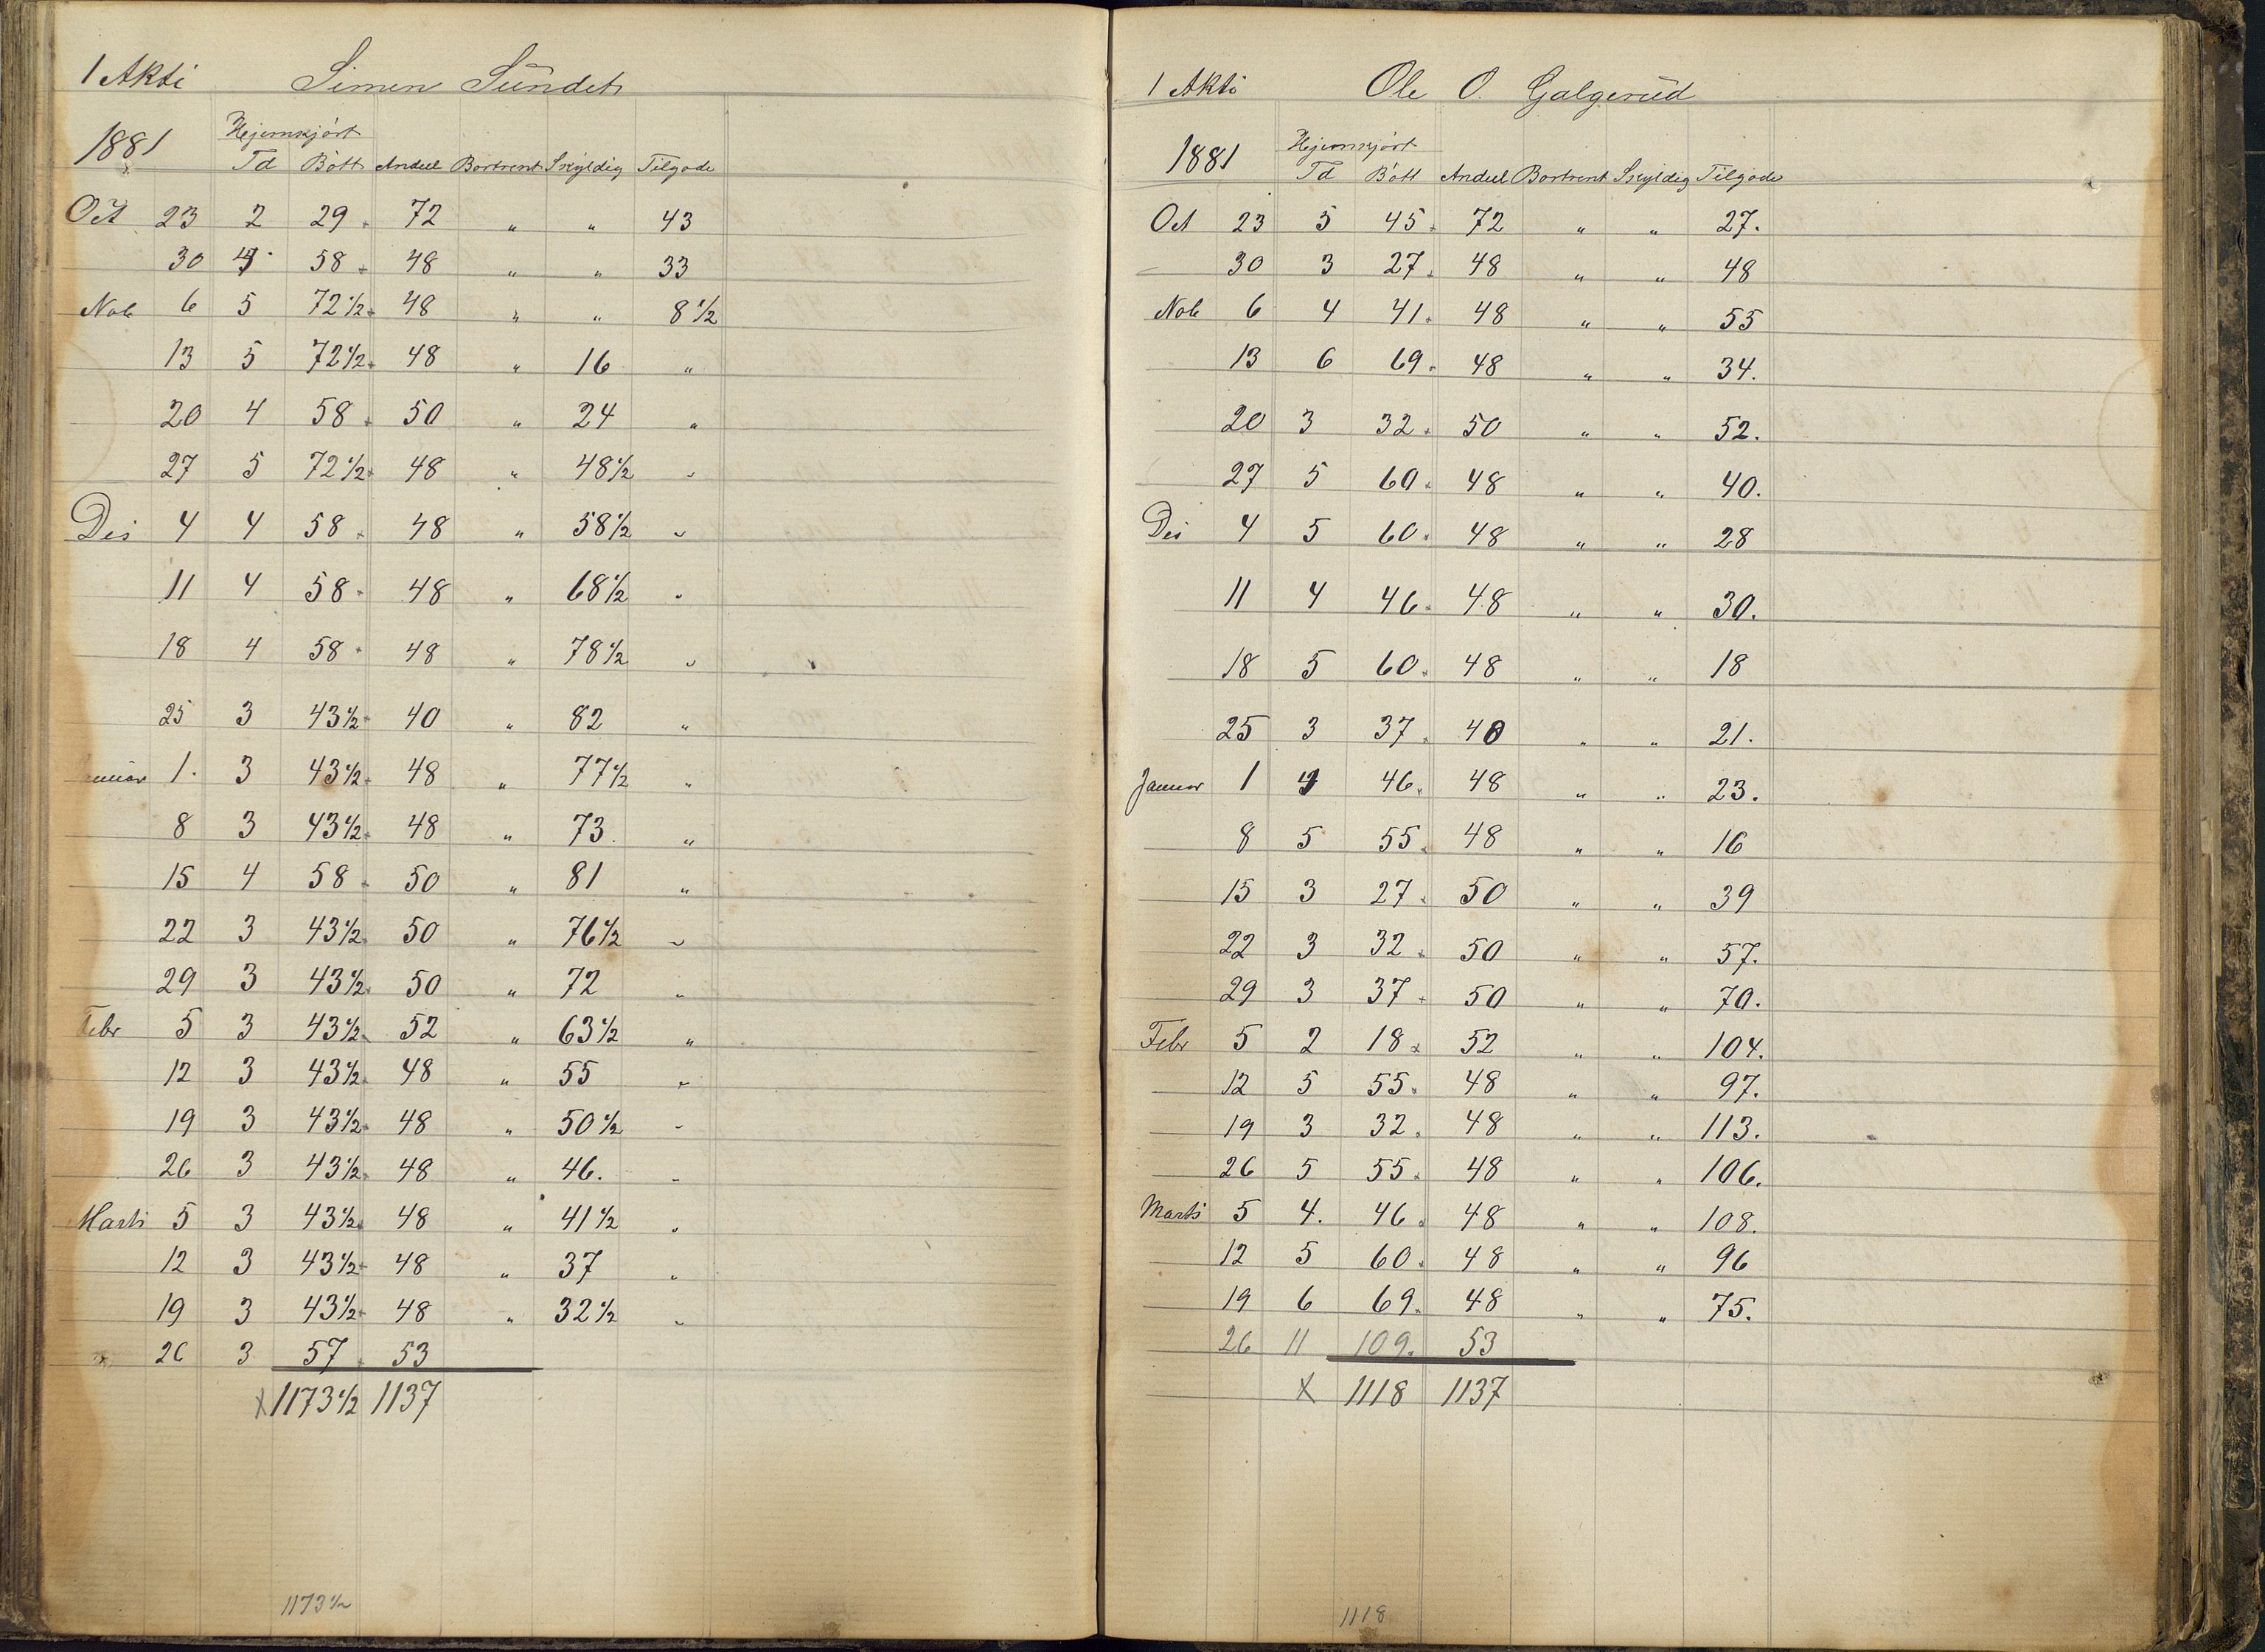 1 Akti Simen Sündet
1881 Hjemkjört
Td Bött Andeel Bortrent Skyldig Tilgode
Oct 23 2 29 72 " " 43
30 4 58 48 " " 33
Nob 6 5 72½ 48 " " 8½
13 5 72½ 48 " 16 "
20 4 58 50 " 24 "
27 5 72½ 48 " 48½ "
Des 4 4 58 48 " 58½ "
11 4 58 48 " 68½ "
18 4 58 48 " 78½ "
25 3 43½ 40 " 82 "
Januar 1. 3 43½ 48 " 77½ "
8 3 43½ 48 " 73 "
15 4 58 50 " 81 "
22 3 43½ 50 " 76½ "
29 3 43½ 50 " 72 "
Febr 5 3 43½ 52 " 63½ "
12 3 43½ 48 " 55 "
19 3 43½ 48 " 50½ "
26 3 43½ 48 " 46. "
Marts 5 3 43½ 48 " 41½ "
12 3 43½ 48 " 37 "
19 3 43½ 48 " 32½ "
26 3 57 53
x 1173½ 1137
1173½
1 Akti Ole O. Galgerüd
1881 Hjemkjört
Td Bött Andeel Bortrent Skyldig Tilgode
Oct 23 5 45 72 " " 27.
30 3 27 48 " " 48
Nob 6 4 41 48 " " 55
13 6 69 48 " " 34.
20 3 32 50 " " 52.
27 5 60 48 " " 40.
Des 4 5 60 48 " " 28
11 4 46 48 " " 30.
18 5 60 48 " " 18
25 3 37 40 " " 21.
Januar 1 4 46 48 " " 23.
8 5 55 48 " " 16
15 3 27 50 " " 39
22 3 32 50 " " 57.
29 3 37 50 " " 70.
Febr 5 2 18 52 " " 104.
12 5 55 48 " " 97.
19 3 32 48 " " 113.
26 5 55 48 " " 106.
Marts 5 4. 46 48 " " 108.
12 5 60 48 " " 96
19 6 69 48 " " 75.
26 11 109. 53
x 1118 1137
1118